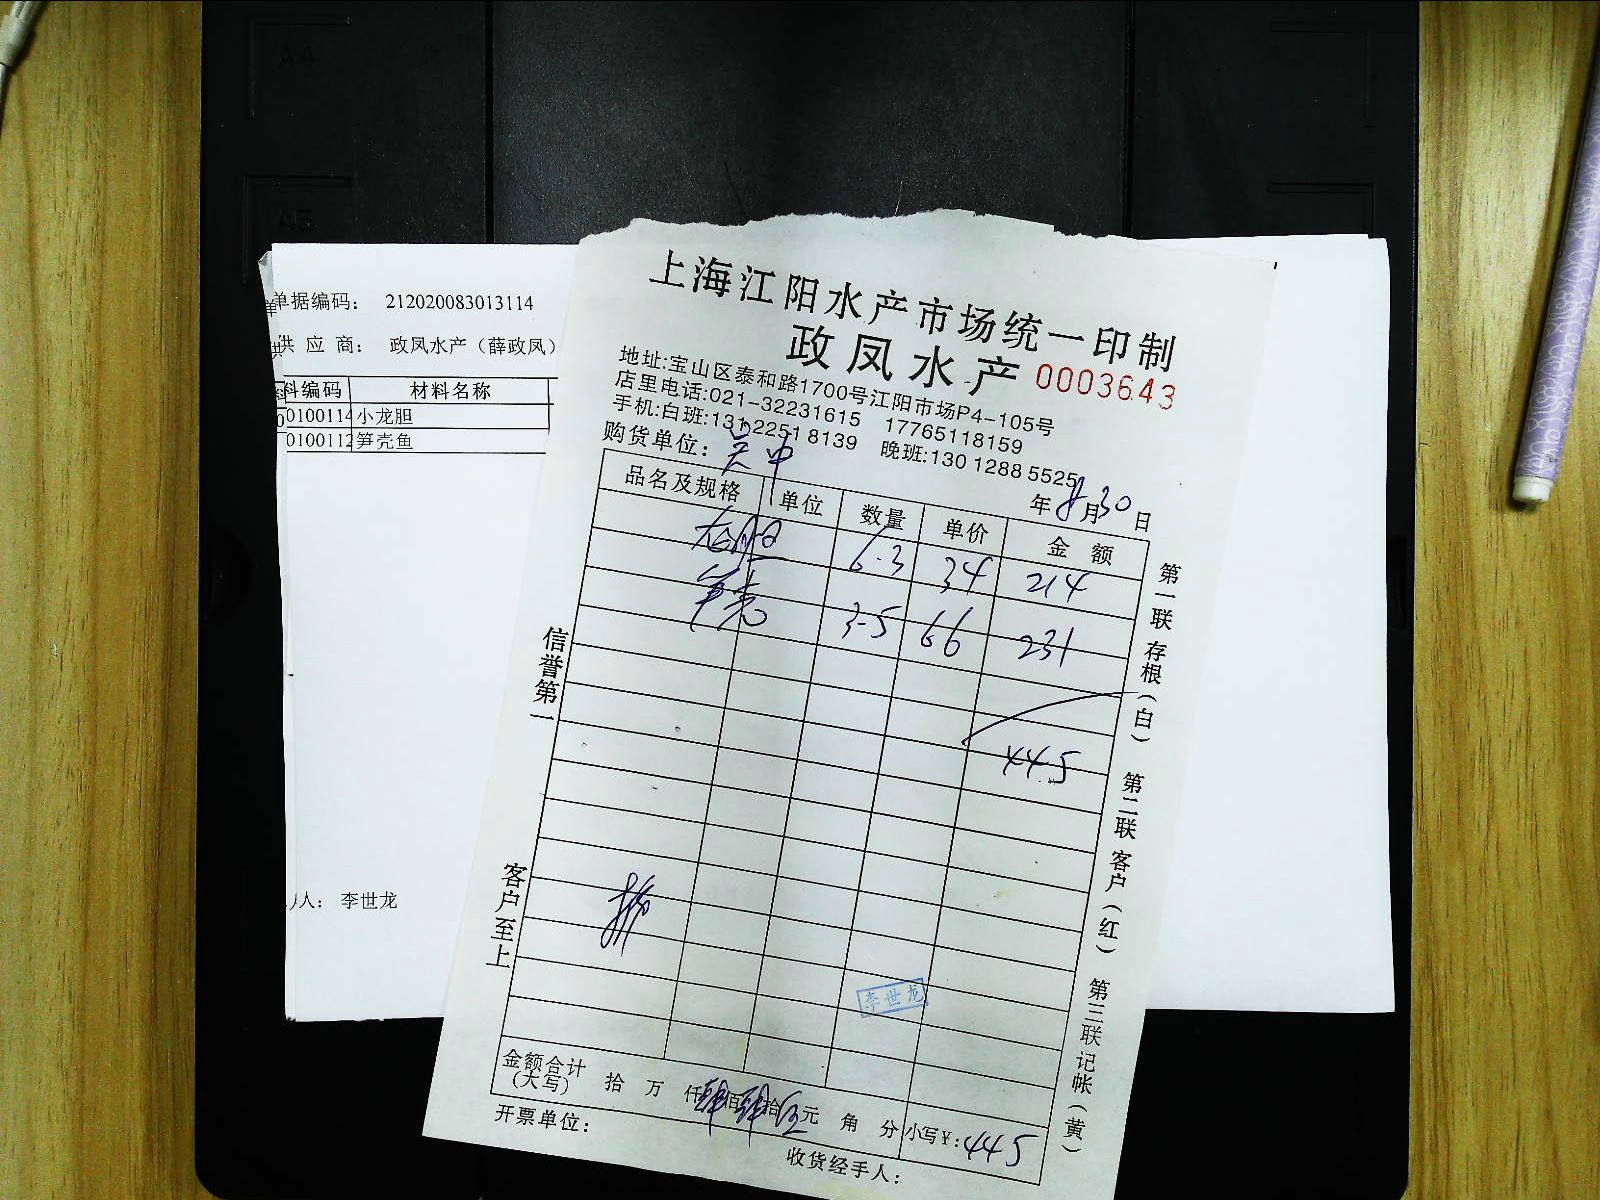 A4
A5
单据编码： 212020083013114
供 应 商： 政凤水产（薛政凤）
料编码 材料名称
0100114 小龙胆
0100112 笋壳鱼
人： 李世龙
上海江阳水产市场统一印制
政凤水产 0003643
地址:宝山区泰和路1700号江阳市场P4-105号
店里电话:021-32231615 17765118159
手机:白班:131 2251 8139 晚班:130 1288 5525
购货单位：吴中
年8月30日
品名及规格 单位 数量 单价 金额
龙胆 6.3 34 214
笋壳 3.5 66 231
445
李世龙
金额合计
(大写) 拾 万 仟肆佰肆拾伍元 角 分 小写¥:445
开票单位：
收货经手人：
信誉第一
客户至上
第一联 存根（白） 第二联 客户（红） 第三联 记帐（黄）